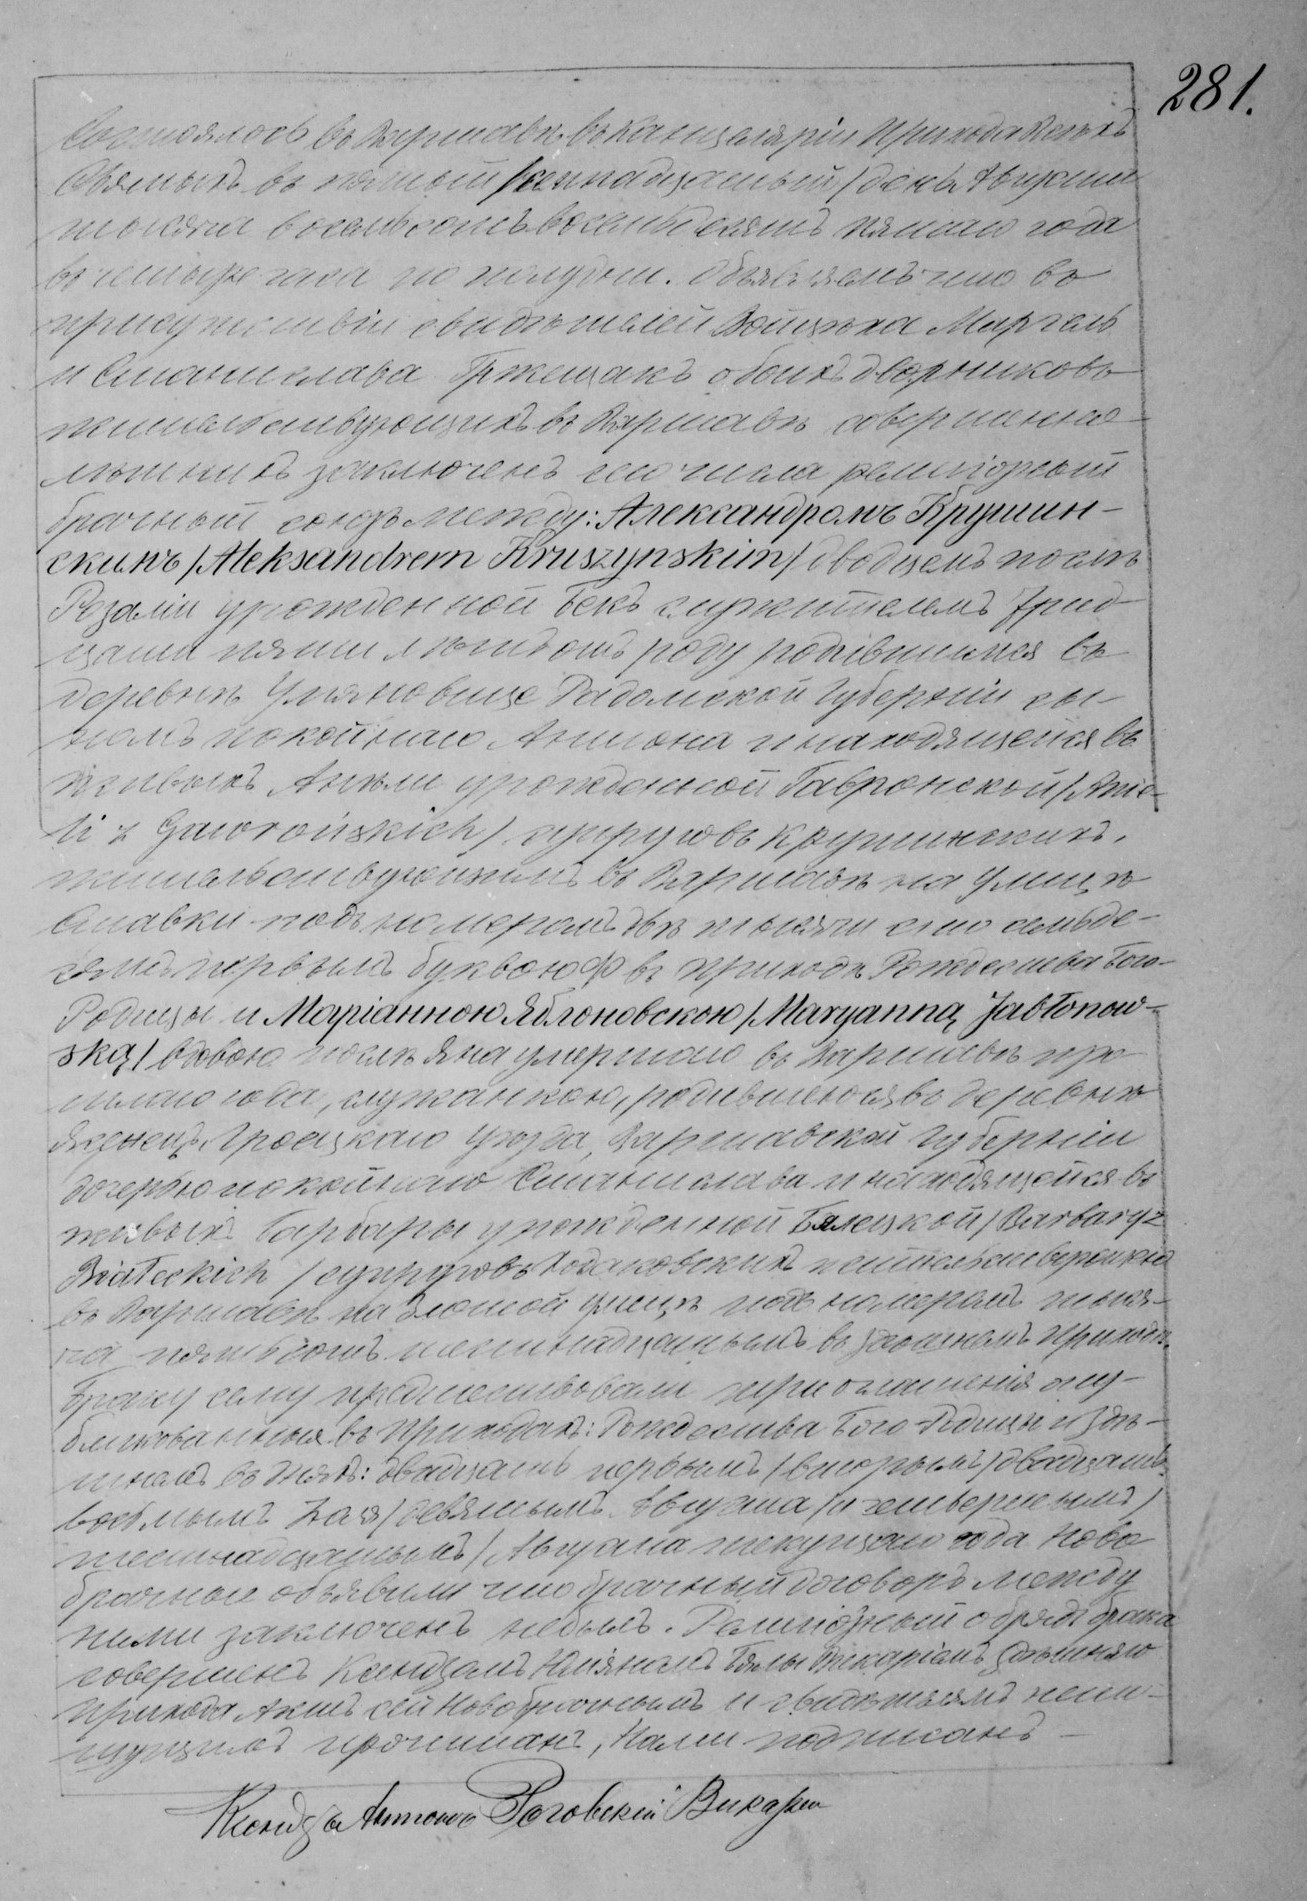 281.
Состоялось въ Варшавѣ въ Канцеляріи Прихода Всѣхъ
Святыхъ въ пятый /семнадцатый/ день Августа
тысяча восемьсотъ восемьдесятъ пятаго года
въ четыре часа по полудни. Объявляемъ что въ
присутствіи свидѣтелей Войцѣха Маргель
и Станислава Гржещакъ обоихъ дворниковъ
жительствующихъ въ Варшавѣ совершенно-
лѣтнихъ заключенъ сего числа религіозный
брачный союзъ между: Александромъ Крушин-
скимъ /Aleksandrem Kruszynskim/ вдовцемъ послѣ
Розаліи урожденной Бекъ служителемъ Трид-
цати пяти лѣтъ отъ роду родившимся въ
деревнѣ Радомской Губерніи сы-
номъ покойнаго Антона и находящейся въ
живыхъ Анѣли урожденной Гавронской /Anie-
li z Gawrońskich/ супруговъ Крушинскихъ.
жительствующимъ въ Варшавѣ на Улицѣ
Ставки подъ номеромъ двѣ тысячи сто семьде-
сятъ первымъ буквою Ф въ приходѣ Рождества Бого-
Родицы и Маріанною Яблоновскою /Maryanną Jabłonow-
ską/ вдовою послѣ Яна умершаго въ Варшавѣ про-
шлаго года, служанкою, родившеюся въ деревнѣ
Гроецкаго Уѣзда, Варшавской Губерніи
дочерью покойнаго Станислава и находящейся въ
живыхъ Барбары урожденной Бялецкой /Barbary z
Białeckich/ супруговъ жительствующею
въ Варшавѣ на Злотой улицѣ подъ номеромъ тыся-
ча пятьсотъ шестнадцатымъ въ здѣшнемъ Приходѣ.
Браку сему предшествовали три оглашенія опу-
бликованныя въ Приходахъ: Рождества Бого-Родицы и здѣ-
шнемъ въ дняхъ: двадцать первымъ /вторымъ/ двадцать
восьмымъ Іюля /девятымъ Августа/ и четвертымъ/
шестнадцатымъ/ Августа текущаго года Ново
брачные объявили что брачный договоръ между
ними заключенъ небылъ. Религіозный обрядъ брака
совершенъ Ксендзомъ Юліяномъ Бялы Викаріемъ здѣшняго
прихода Актъ сей Новобрачнымъ и свидѣтелямъ негра-
прочитанъ, Нами подписанъ —
Ксендзъ Антоній Роговскій Викарій